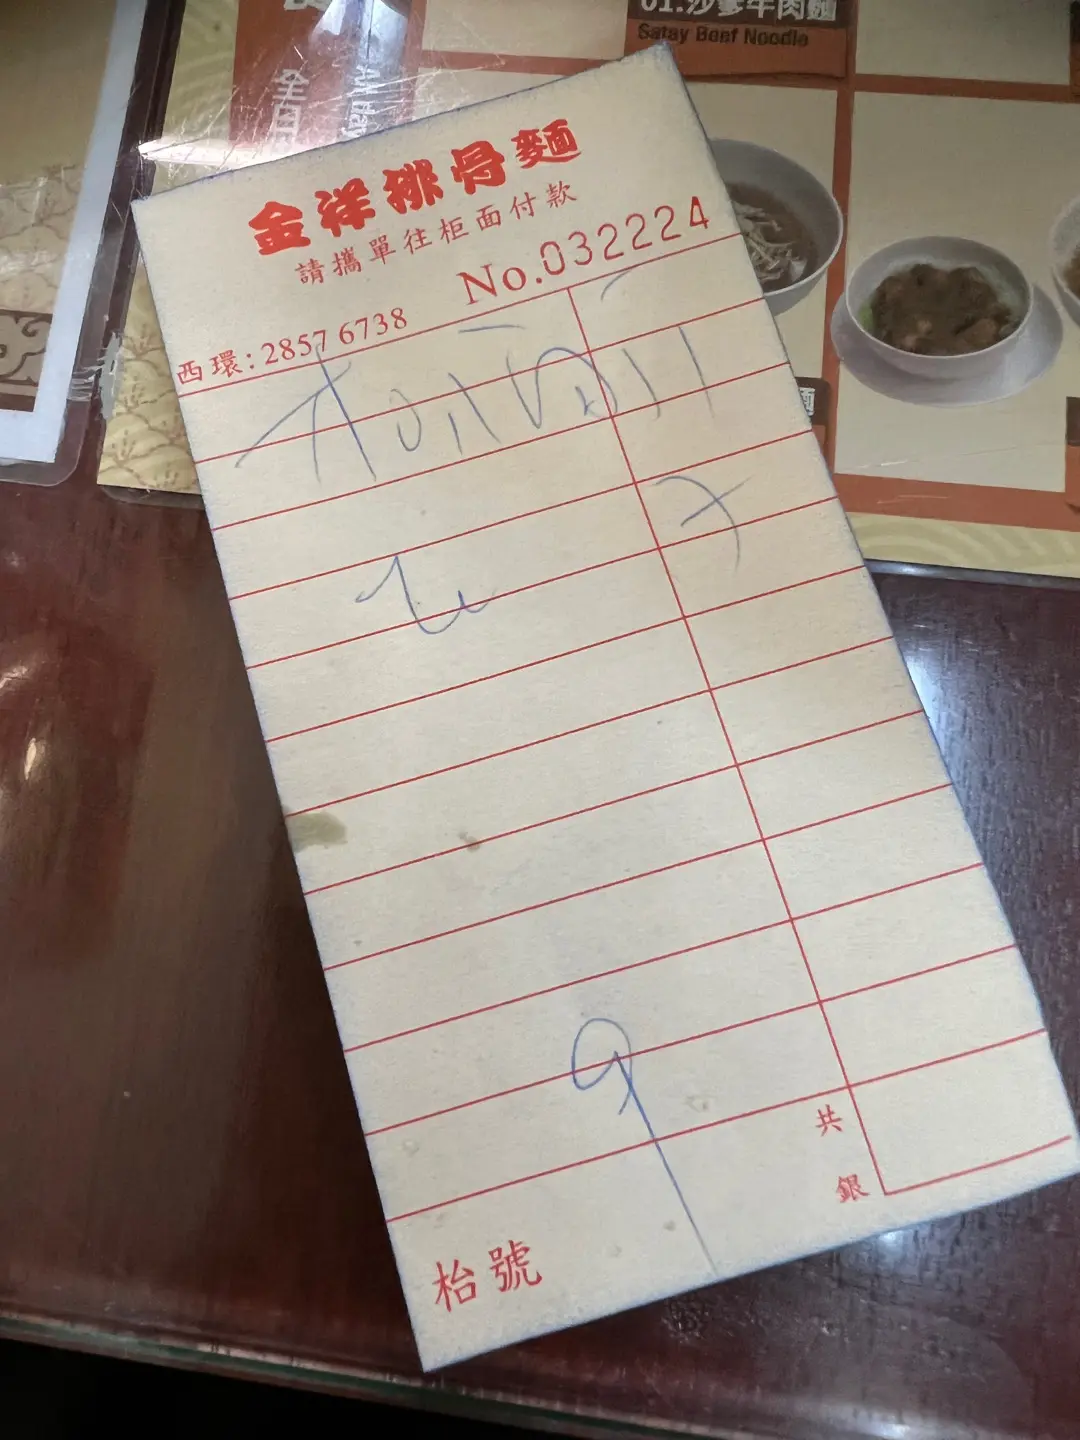 01.沙爹牛肉麵
Satay Beef Noodle
全日
All Day
金祥排骨麵
請攜單往柜面付款
No.032224
西環:2857 6738
麵
9
共
銀
枱號